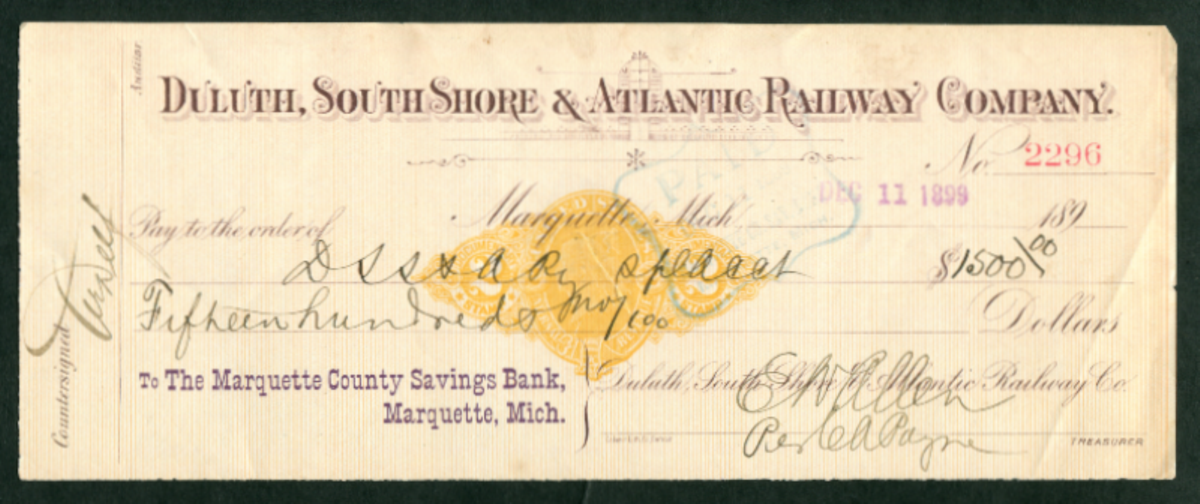 Auditor
DULUTH, SOUTH SHORE & ATLANTIC RAILWAY COMPANY.
No. 2296
PAID
Marquette, Mich., DEC 11 1899 189
Pay to the order of
D S S & A Ry Spl acct $1500/00
Fifteen hundred & no/100 Dollars
To The Marquette County Savings Bank,
Marquette, Mich.
Duluth, South Shore & Atlantic Railway Co.
E W Allen
Per C A Payne
TREASURER
Countersigned
2 2